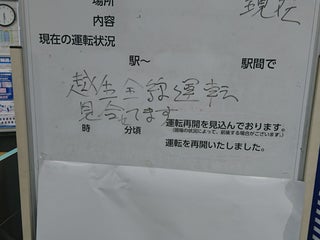 場所
現在
内容
現在の運転状況
駅〜 駅間で
越生全線運転
見合せてます
時 分頃 運転再開を見込んでおります。
(現場の状況によって、前後する場合がございます。)
運転を再開いたしました。